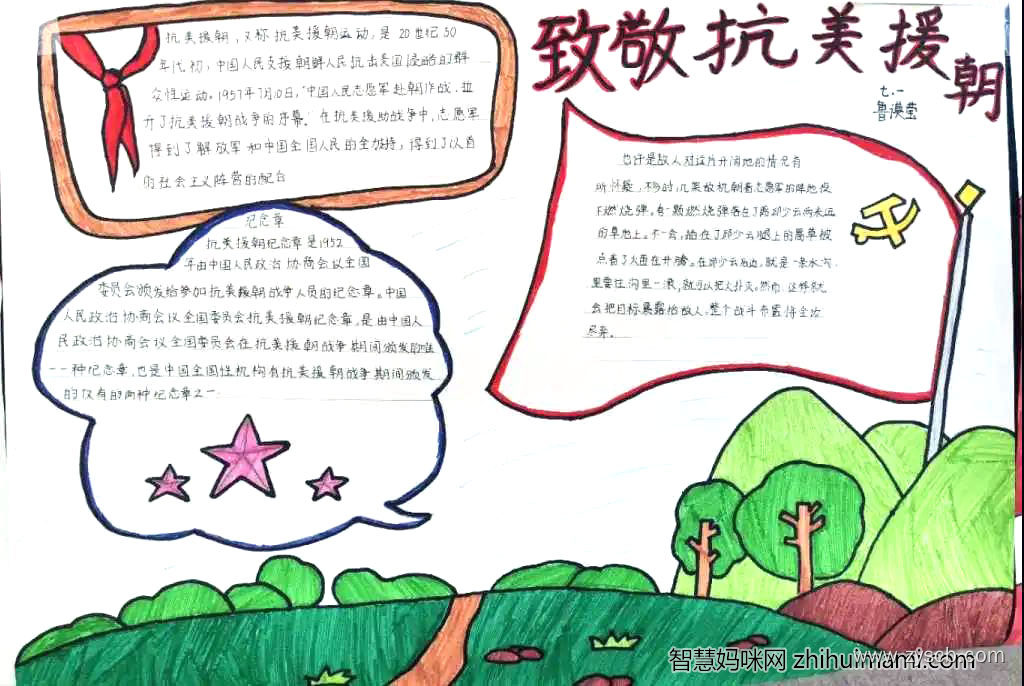 致敬抗美援朝
七.一
鲁漠莹
抗美援朝,又称抗美援朝运动,是20世纪50
年代初,中国人民支援朝鲜人民抗击美国侵略的群
众性运动。1957年7月10日,中国人民志愿军赴朝作战,拉
开了抗美援朝战争的序幕。在抗美援助战争中,志愿军
得到了解放军和中国全国人民的全力持,得到了以首
的社会主义阵营的配合
纪念章
抗美援朝纪念章是1952
年由中国人民政治协商会议全国
委员会颁发给参加抗美援朝战争人员的纪念章。中国
人民政治协商会议全国委员会抗美援朝纪念章,是由中国人
民政治协商会议全国委员会在抗美援朝战争期间颁发的唯
一一种纪念章,也是中国全国性机构有抗美援朝战争期间颁发
的仅有的两种纪念章之一
也许是敌人对这片开阔地的情况有
所怀疑,不多时,几架敌机朝着志愿军的阵地投
下燃烧弹。有一颗燃烧弹落在了离邱少云两米远
的草地上。不一会,趴在了邱少云腿上的蔓草被
点着了火苗在升腾。在邱少云后边,就是一条水沟,
里要往沟里一滚,就可以把火扑灭。然而,这样就
会把目标暴露给敌人,整个战斗布置将全次
尽弃。
智慧妈咪网 zhihuimami.com
www.zfscb.com